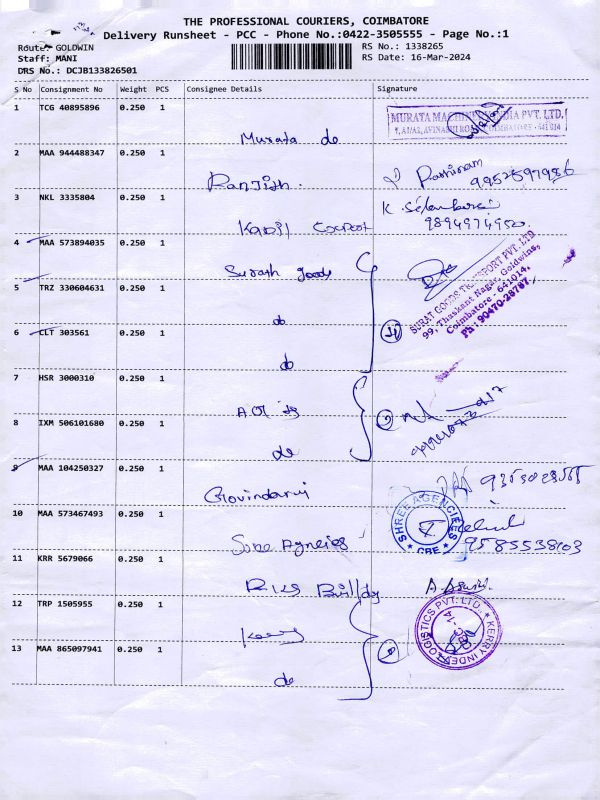 THE PROFESSIONAL COURIERS, COIMBATORE
Delivery Runsheet - PCC - Phone No.:0422-3505555 - Page No.:1
Route: GOLDWIN
RS No.: 1338265
Staff: MANI
RS Date: 16-Mar-2024
DRS No.: DCJB133826501
S No Consignment No Weight PCS Consignee Details Signature
1 TCG 40895896 0.250 1
MURATA MACHINERY INDIA PVT. LTD.
COIMBATORE - 641 014
Murata de
2 MAA 944488347 0.250 1
Ranjith.
9952597986
3 NKL 3335804 0.250 1
K.
9894974950
4 MAA 573894035 0.250 1
Surath goods
SURAT GOODS TRANSPORT PVT. LTD
99, Thaskant Nagar, Goldwins,
Coimbatore - 641014.
Ph : 90470-28787
5 TRZ 330604631 0.250 1
do
6 CLT 303561 0.250 1
do
7 HSR 3000310 0.250 1
8 IXM 506101680 0.250 1
de
9 MAA 104250327 0.250 1
Govindaraj
10 MAA 573467493 0.250 1
SHREE AGENCIES
CBE
Sree Agncies
9585538103
11 KRR 5679066 0.250 1
12 TRP 1505955 0.250 1
Kerry
KERRY INDEV LOGISTICS PVT. LTD.
13 MAA 865097941 0.250 1
de